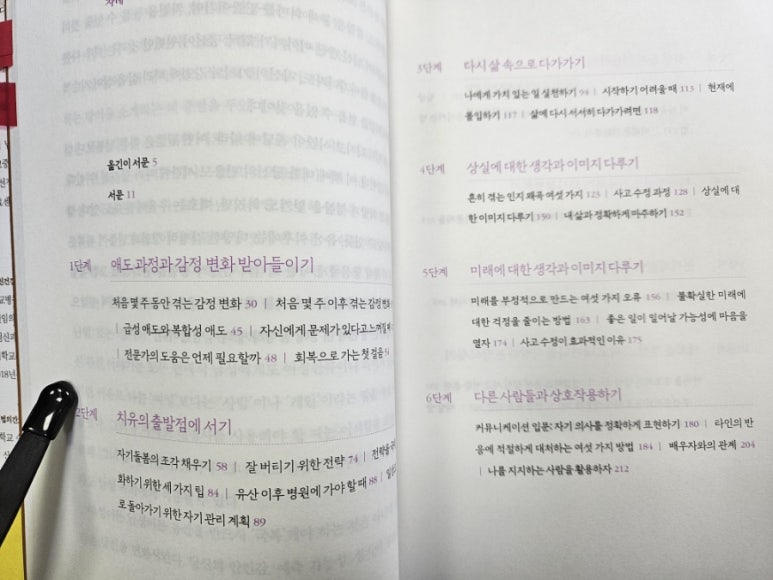 차례
옮긴이 서문 5
서문 11
1단계 애도 과정과 감정 변화 받아들이기
처음 몇 주 동안 겪는 감정 변화 30 | 처음 몇 주 이후 겪는 감정 변화
| 급성 애도와 복합성 애도 45 | 자신에게 문제가 있다고 느껴질 때
| 전문가의 도움은 언제 필요할까 48 | 회복으로 가는 첫걸음
2단계 치유의 출발점에 서기
자기돌봄의 조각 채우기 58 | 잘 버티기 위한 전략 74 |
화하기 위한 세 가지 팁 84 | 유산 이후 병원에 가야 할 때 88 |
로 돌아가기 위한 자기 관리 계획 89
3단계 다시 삶 속으로 다가가기
나에게 가치 있는 일 실천하기 94 | 시작하기 어려울 때 113 | 현재에
몰입하기 117 | 삶에 다시 서서히 다가가려면 118
4단계 상실에 대한 생각과 이미지 다루기
흔히 겪는 인지 왜곡 여섯 가지 123 | 사고 수정 과정 128 | 상실에 대
한 이미지 다루기 150 | 내 삶과 정확하게 마주하기 152
5단계 미래에 대한 생각과 이미지 다루기
미래를 부정적으로 만드는 여섯 가지 오류 156 | 불확실한 미래에
대한 걱정을 줄이는 방법 163 | 좋은 일이 일어날 가능성에 마음을
열자 174 | 사고 수정이 효과적인 이유 175
6단계 다른 사람들과 상호작용하기
커뮤니케이션 입문: 자기 의사를 정확하게 표현하기 180 | 타인의 반
응에 적절하게 대처하는 여섯 가지 방법 184 | 배우자와의 관계 204
| 나를 지지하는 사람을 활용하자 212